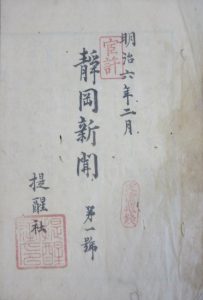 明治六年二月
官許
靜岡新聞
第一號
提醒社